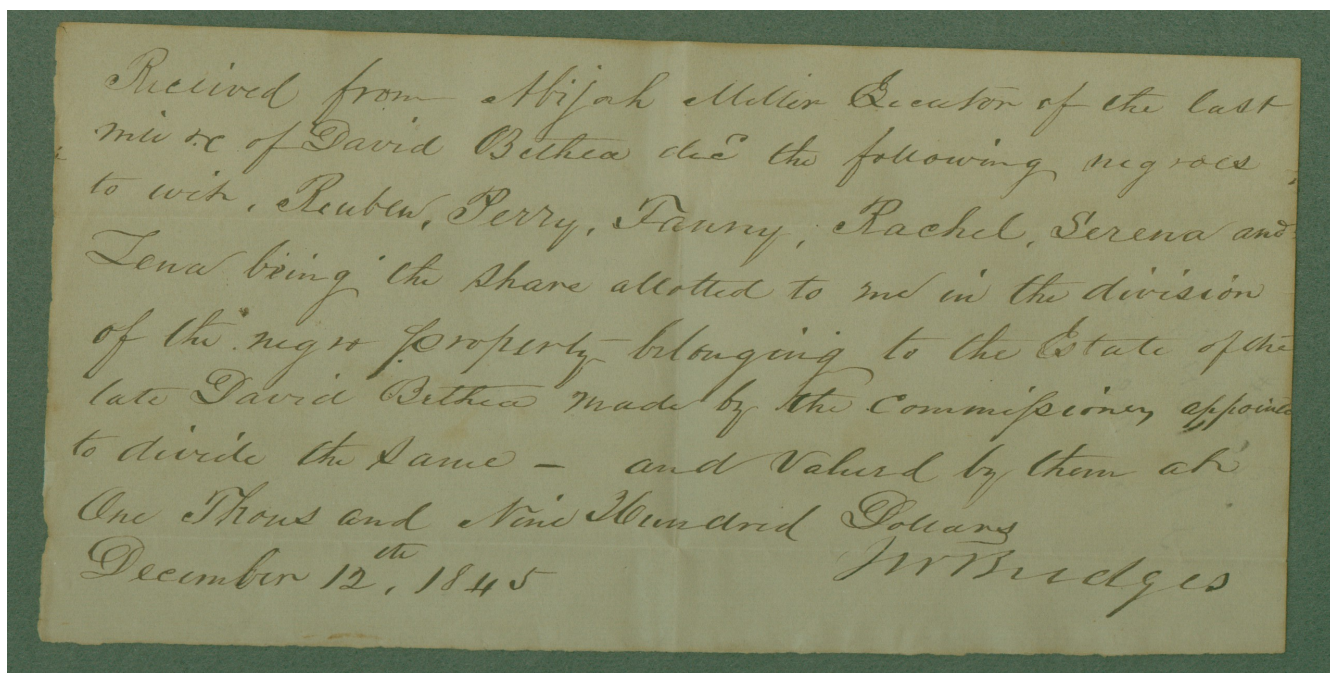 Received from Abijah Miller Executor of the last
will &c of David Bethea decd the following negroes
to wit, Reuben, Perry, Fanny, Rachel, Serena and
Lena being the share allotted to me in the division
of the negro property belonging to the Estate of the
late David Bethea made by the Commissioners appointed
to divide the same – and Valued by them at
One Thousand Nine Hundred Dollars
December 12th, 1845 Bridges